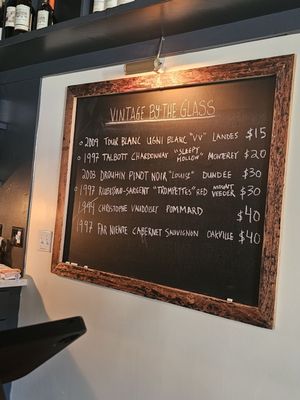 VINTAGE BY THE GLASS
2009 TOUR BLANC UGNI BLANC "VV" LANDES $15
1997 TALBOTT CHARDONNAY "SLEEPY HOLLOW" MONTEREY $20
2003 DROUHIN PINOT NOIR "LOUISE" DUNDEE $30
1997 "TROMPETTICS" RED MOUNT VEEDER $30
CHRISTOPHE VAUDOISEY POMMARD $40
1997 FAR NIENTE CABERNET SAUVIGNON OAKVILLE $40